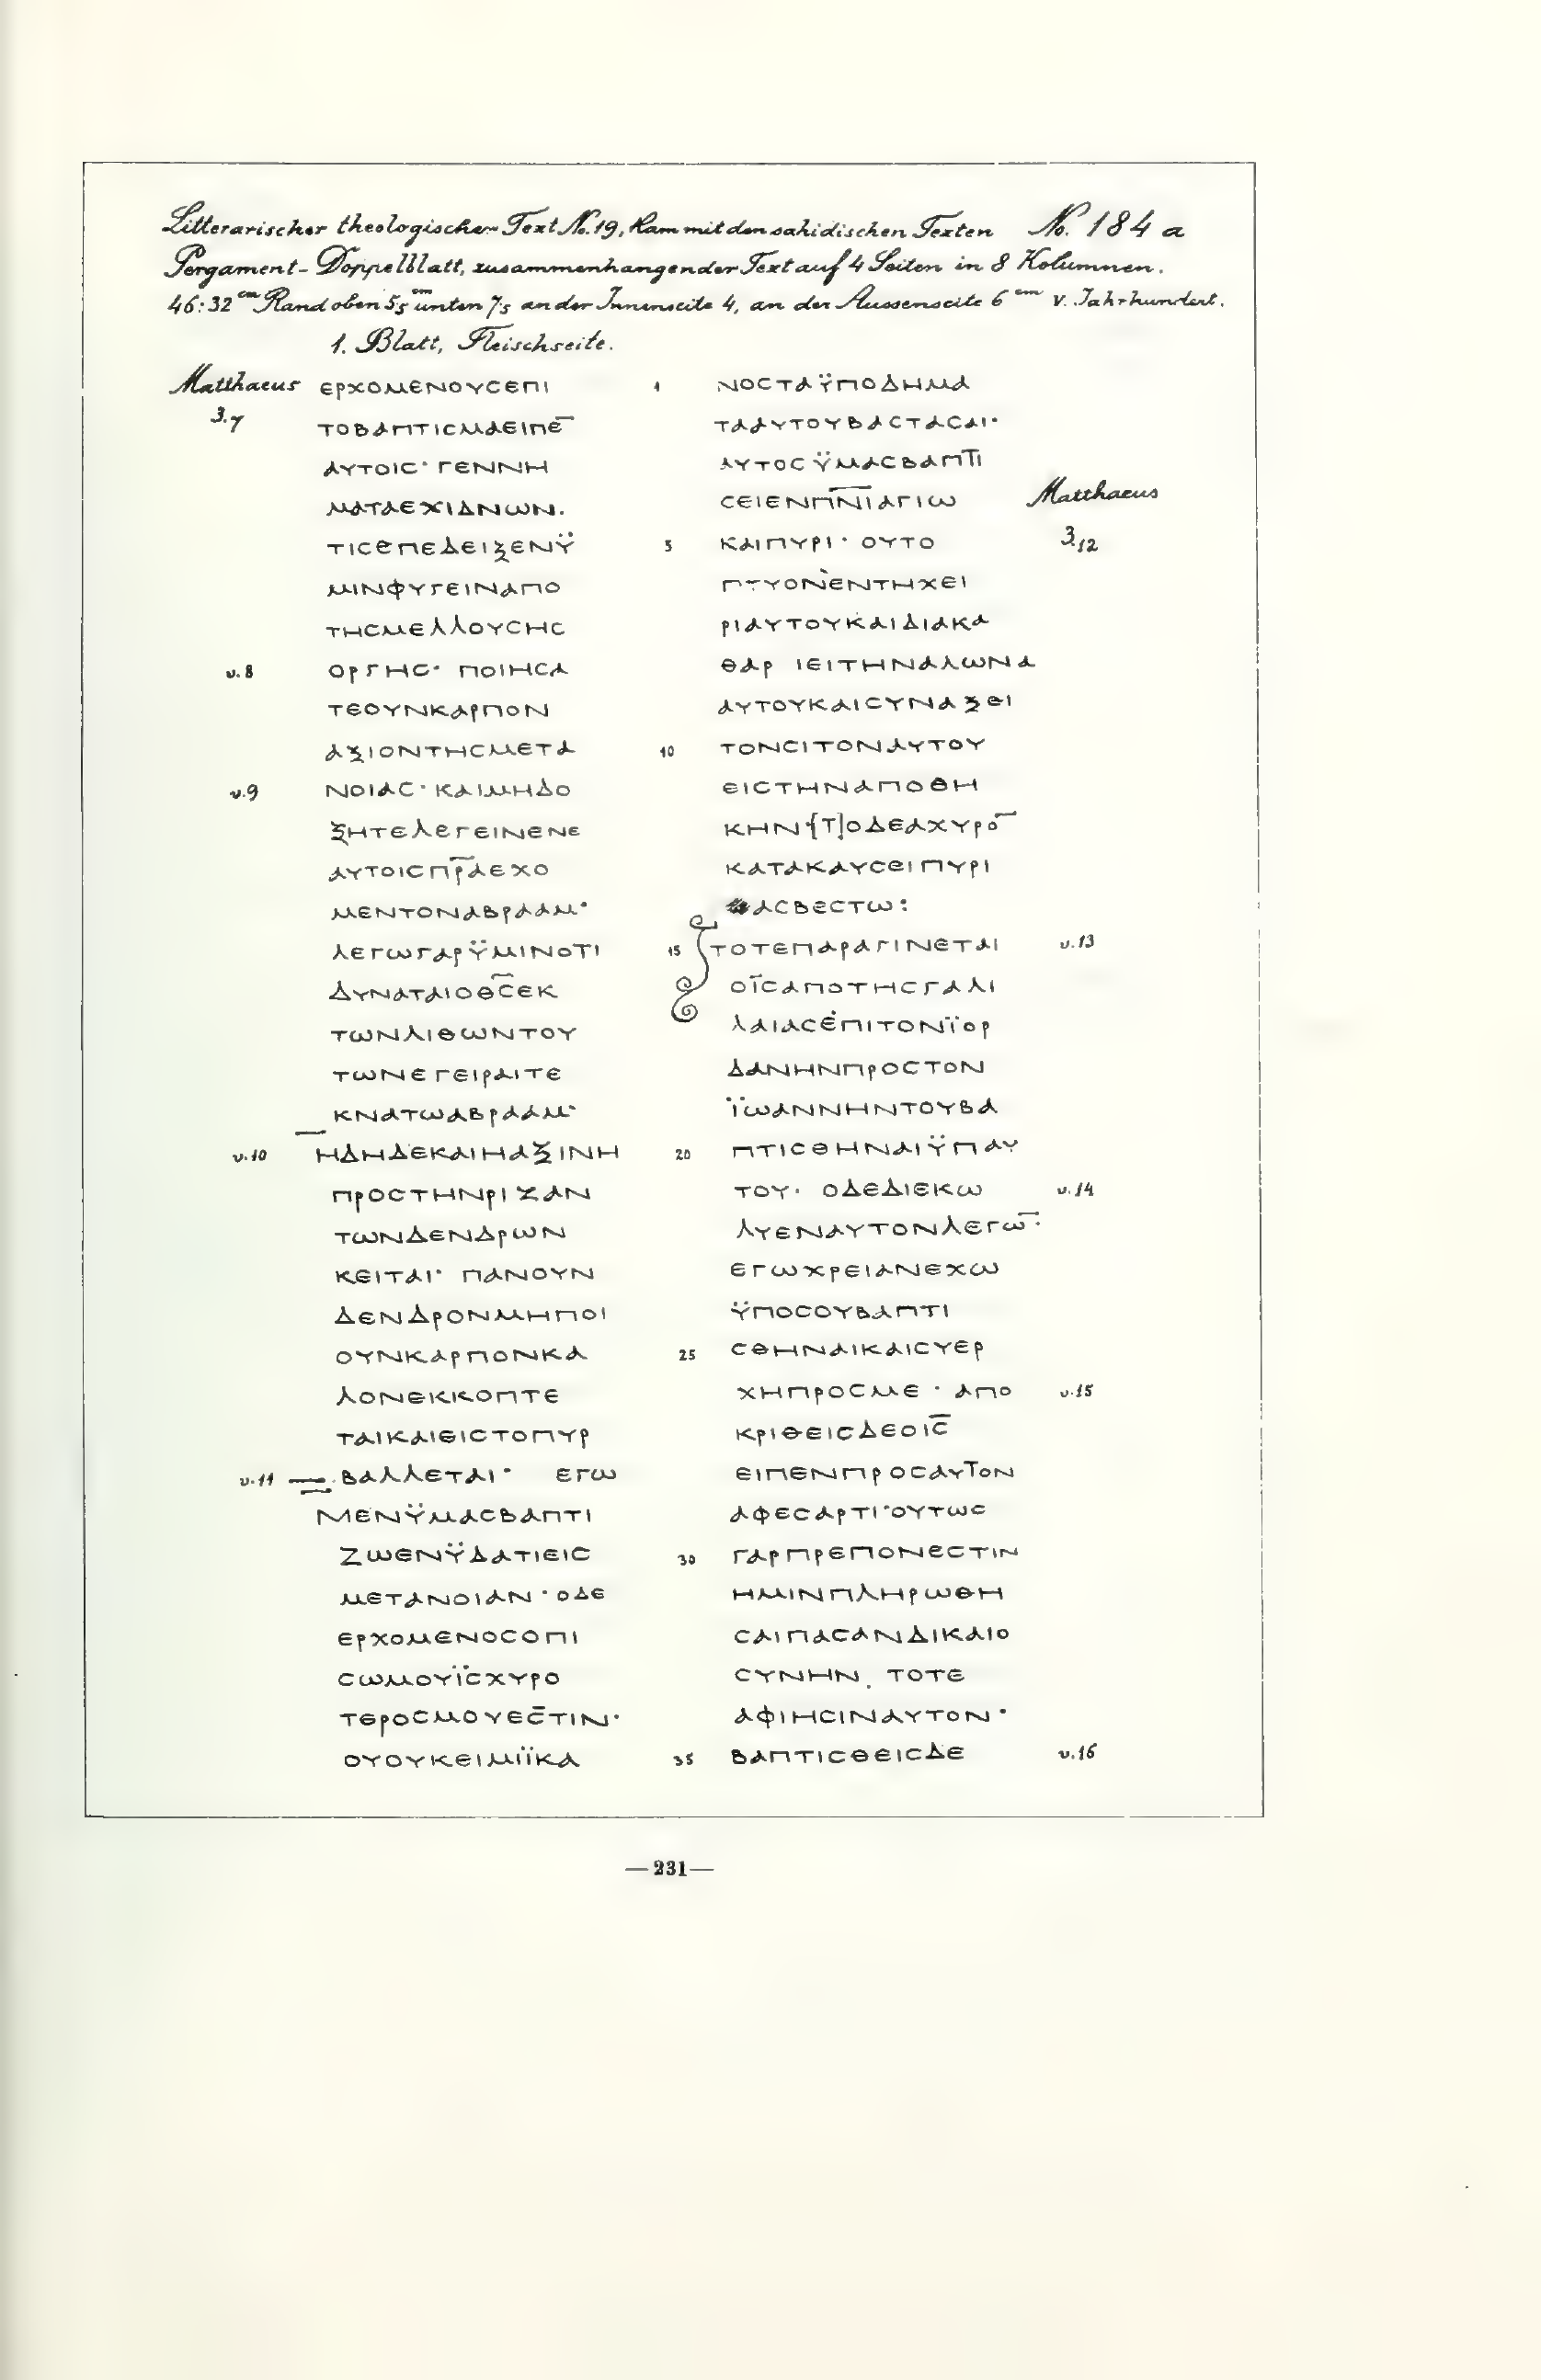 Litterarischer theologischer Text No. 19, kam mit den sahidischen Texten No. 184 a
Pergament-Doppelblatt, zusammenhangender Text auf 4 Seiten in 8 Kolumnen.
46:32 cm Rand oben 5,5 cm unten 7,5 an der Innenseite 4, an der Aussenseite 6 cm V. Jahrhundert.
1. Blatt, Fleischseite.
Matthaeus ΕΡΧΟΜΕΝΟΥϹΕΠΙ
3.7 ΤΟΒΑΠΤΙϹΜΑΕΙΠΕ̅
ΑΥΤΟΙϹ· ΓΕΝΝΗ
ΜΑΤΑΕΧΙΔΝΩΝ.
ΤΙϹΕΠΕΔΕΙΞΕΝΫ
ΜΙΝΦΥΓΕΙΝΑΠΟ
ΤΗϹΜΕΛΛΟΥϹΗϹ
v.8 ΟΡΓΗϹ· ΠΟΙΗϹΑ
ΤΕΟΥΝΚΑΡΠΟΝ
ΑΞΙΟΝΤΗϹΜΕΤΑ
v.9 ΝΟΙΑϹ· ΚΑΙΜΗΔΟ
ΞΗΤΕΛΕΓΕΙΝΕΝΕ
ΑΥΤΟΙϹΠ̅Ρ̅ΑΕΧΟ
ΜΕΝΤΟΝΑΒΡΑΑΜ·
ΛΕΓΩΓΑΡΫΜΙΝΟΤΙ
ΔΥΝΑΤΑΙΟΘ̅Ϲ̅ΕΚ
ΤΩΝΛΙΘΩΝΤΟΥ
ΤΩΝΕΓΕΙΡΑΙΤΕ
ΚΝΑΤΩΑΒΡΑΑΜ·
v.10 ΗΔΗΔΕΚΑΙΗΑΞΙΝΗ
ΠΡΟϹΤΗΝΡΙΖΑΝ
ΤΩΝΔΕΝΔΡΩΝ
ΚΕΙΤΑΙ· ΠΑΝΟΥΝ
ΔΕΝΔΡΟΝΜΗΠΟΙ
ΟΥΝΚΑΡΠΟΝΚΑ
ΛΟΝΕΚΚΟΠΤΕ
ΤΑΙΚΑΙΕΙϹΤΟΠΥΡ
v.11 ΒΑΛΛΕΤΑΙ· ΕΓΩ
ΜΕΝΫΜΑϹΒΑΠΤΙ
ΖΩΕΝΫΔΑΤΙΕΙϹ
ΜΕΤΑΝΟΙΑΝ · ΟΔΕ
ΕΡΧΟΜΕΝΟϹΟΠΙ
ϹΩΜΟΥΪϹΧΥΡΟ
ΤΕΡΟϹΜΟΥΕϹ̅ΤΙΝ·
ΟΥΟΥΚΕΙΜΙΪΚΑ
1 ΝΟϹΤΑΫΠΟΔΗΜΑ
ΤΑΑΥΤΟΥΒΑϹΤΑϹΑΙ·
ΑΥΤΟϹΫΜΑϹΒΑΠΤΙ
ϹΕΙΕΝΠ̅Ν̅Ι̅ΑΓΙΩ Matthaeus
5 ΚΑΙΠΥΡΙ· ΟΥΤΟ 3.12
ΠΤΥΟΝΕΝΤΗΧΕΙ
ΡΙΑΥΤΟΥΚΑΙΔΙΑΚΑ
ΘΑΡ ΙΕΙΤΗΝΑΛΩΝΑ
ΑΥΤΟΥΚΑΙϹΥΝΑΞΕΙ
10 ΤΟΝϹΙΤΟΝΑΥΤΟΥ
ΕΙϹΤΗΝΑΠΟΘΗ
ΚΗΝ{Τ]ΟΔΕΑΧΥΡΟ̅
ΚΑΤΑΚΑΥϹΕΙΠΥΡΙ
ΑϹΒΕϹΤΩ:
15 ΤΟΤΕΠΑΡΑΓΙΝΕΤΑΙ v.13
ΟΙ̅ϹΑΠΟΤΗϹΓΑΛΙ
ΛΑΙΑϹΕΠΙΤΟΝΪΟΡ
ΔΑΝΗΝΠΡΟϹΤΟΝ
ΪΩΑΝΝΗΝΤΟΥΒΑ
20 ΠΤΙϹΘΗΝΑΙΫΠΑΥ
ΤΟΥ· ΟΔΕΔΙΕΚΩ v.14
ΛΥΕΝΑΥΤΟΝΛΕΓΩ̅·
ΕΓΩΧΡΕΙΑΝΕΧΩ
ΫΠΟϹΟΥΒΑΠΤΙ
25 ϹΘΗΝΑΙΚΑΙϹΥΕΡ
ΧΗΠΡΟϹΜΕ · ΑΠΟ v.15
ΚΡΙΘΕΙϹΔΕΟΙϹ̅
ΕΙΠΕΝΠΡΟϹΑΥΤΟΝ
ΑΦΕϹΑΡΤΙ·ΟΥΤΩϹ
30 ΓΑΡΠΡΕΠΟΝΕϹΤΙΝ
ΗΜΙΝΠΛΗΡΩΘΗ
ϹΑΙΠΑϹΑΝΔΙΚΑΙΟ
ϹΥΝΗΝ. ΤΟΤΕ
ΑΦΙΗϹΙΝΑΥΤΟΝ·
35 ΒΑΠΤΙϹΘΕΙϹΔΕ v.16
—231—